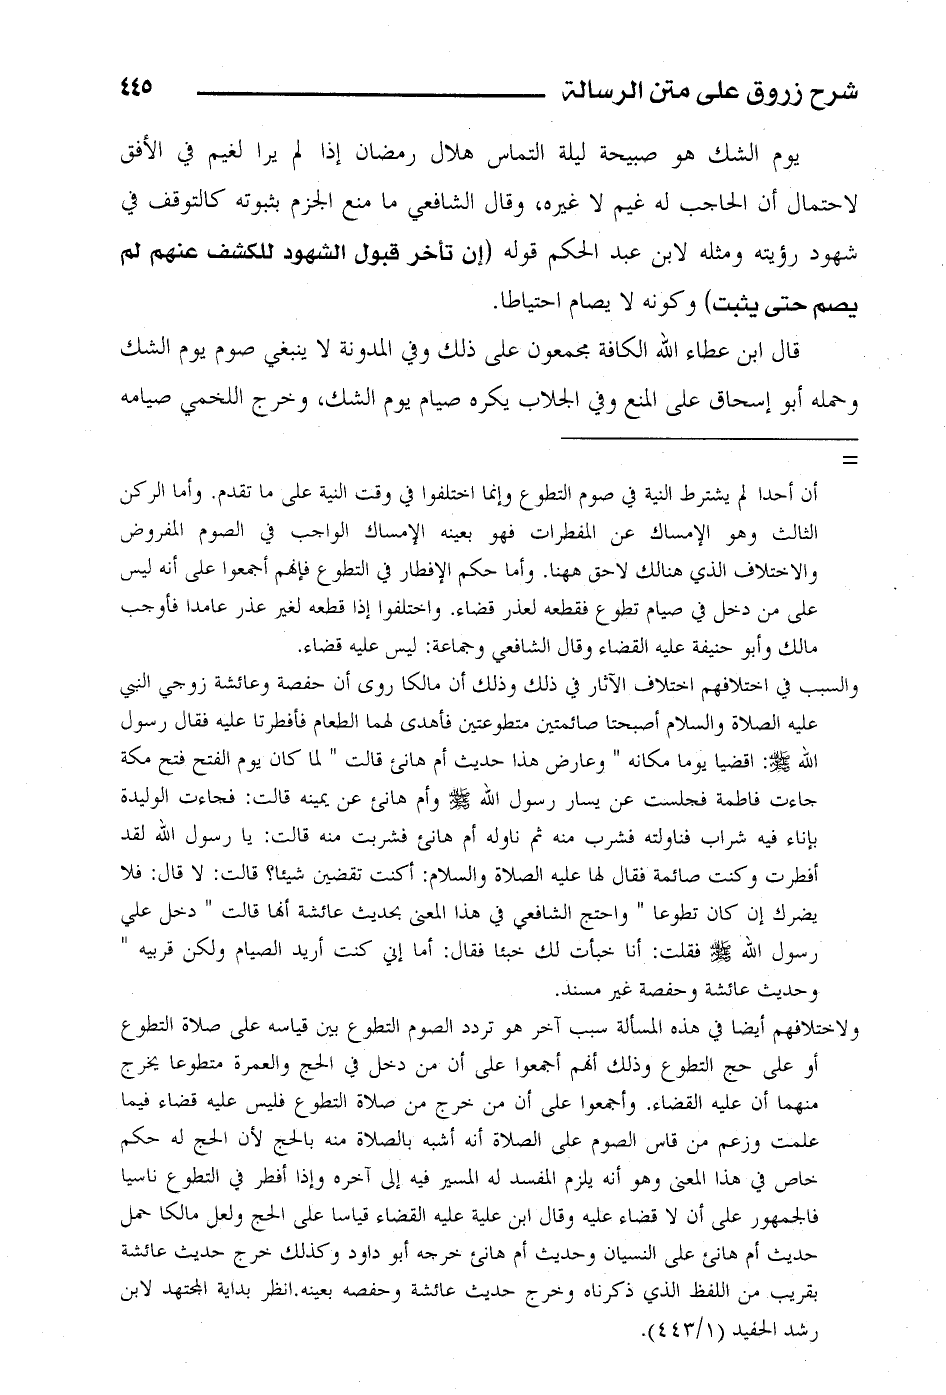 شرح زروق على متن الرسالة ٤٤٥
يوم الشك هو صبيحة ليلة التماس هلال رمضان إذا لم يرا لغيم في الأفق
لاحتمال أن الحاجب له غيم لا غيره، وقال الشافعي ما منع الجزم بثبوته كالتوقف في
شهود رؤيته ومثله لابن عبد الحكم قوله (إن تأخر قبول الشهود للكشف عنهم لم
يصم حتى يثبت) وكونه لا يصام احتياطا.
قال ابن عطاء الله الكافة مجمعون على ذلك وفي المدونة لا ينبغي صوم يوم الشك
وحمله أبو إسحاق على المنع وفي الجلاب يكره صيام يوم الشك، وخرج اللخمي صيامه
=
أن أحدا لم يشترط النية في صوم التطوع وإنما اختلفوا في وقت النية على ما تقدم. وأما الركن
الثالث وهو الإمساك عن المفطرات فهو بعينه الإمساك الواجب في الصوم المفروض
والاختلاف الذي هنالك لاحق ههنا. وأما حكم الإفطار في التطوع فإنهم أجمعوا على أنه ليس
على من دخل في صيام تطوع فقطعه لعذر قضاء. واختلفوا إذا قطعه لغير عذر عامدا فأوجب
مالك وأبو حنيفة عليه القضاء وقال الشافعي وجماعة: ليس عليه قضاء.
والسبب في اختلافهم اختلاف الآثار في ذلك وذلك أن مالكا روى أن حفصة وعائشة زوجي النبي
عليه الصلاة والسلام أصبحتا صائمتين متطوعتين فأهدى لهما الطعام فأفطرتا عليه فقال رسول
الله ﷺ: اقضيا يوما مكانه " وعارض هذا حديث أم هانئ قالت " لما كان يوم الفتح فتح مكة
جاءت فاطمة فجلست عن يسار رسول الله ﷺ وأم هانئ عن يمينه قالت: فجاءت الوليدة
بإناء فيه شراب فناولته فشرب منه ثم ناوله أم هانئ فشربت منه قالت: يا رسول الله لقد
أفطرت وكنت صائمة فقال لها عليه الصلاة والسلام: أكنت تقضين شيئا؟ قالت: لا قال: فلا
يضرك إن كان تطوعا " واحتج الشافعي في هذا المعنى بحديث عائشة أنها قالت " دخل علي
رسول الله ﷺ فقلت: أنا خبأت لك خبئا فقال: أما إني كنت أريد الصيام ولكن قربيه "
وحديث عائشة وحفصة غير مسند.
ولاختلافهم أيضا في هذه المسألة سبب آخر هو تردد الصوم التطوع بين قياسه على صلاة التطوع
أو على حج التطوع وذلك أنهم أجمعوا على أن من دخل في الحج والعمرة متطوعا يخرج
منهما أن عليه القضاء. وأجمعوا على أن من خرج من صلاة التطوع فليس عليه قضاء فيما
علمت وزعم من قاس الصوم على الصلاة أنه أشبه بالصلاة منه بالحج لأن الحج له حكم
خاص في هذا المعنى وهو أنه يلزم المفسد له المسير فيه إلى آخره وإذا أفطر في التطوع ناسيا
فالجمهور على أن لا قضاء عليه وقال ابن علية عليه القضاء قياسا على الحج ولعل مالكا حمل
حديث أم هانئ على النسيان وحديث أم هانئ خرجه أبو داود وكذلك خرج حديث عائشة
بقريب من اللفظ الذي ذكرناه وخرج حديث عائشة وحفصه بعينه.انظر بداية المجتهد لابن
رشد الحفيد (٤٤٣/١).